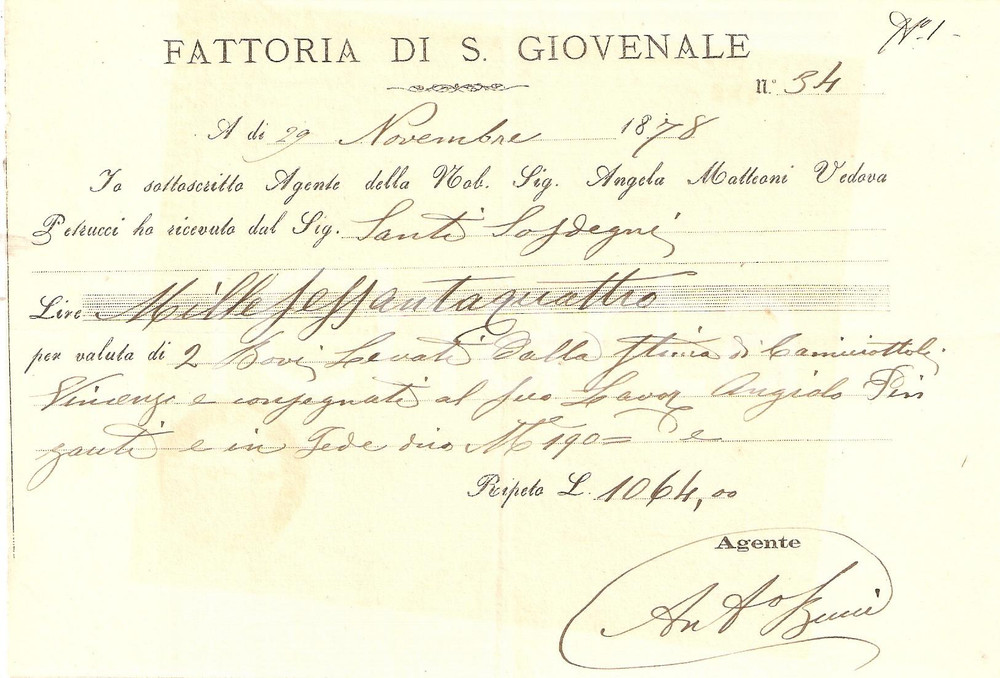 Nº 1
FATTORIA DI S. GIOVENALE
N.º 34
A di 29 Novembre 1878
Io sottoscritto Agente della Nob. Sig. Angela Matteoni Vedova
Petrucci ho ricevuto dal Sig. Santi Sosdegni
Lire Mille sessantaquattro
per valuta di 2 Bovi Levati dalla stima di
Vincenzo e consegnati al suo Lavor Angiolo Pin
zauti e in Fede dico 190= e
Ripeto L. 1064,00
Agente
Anto